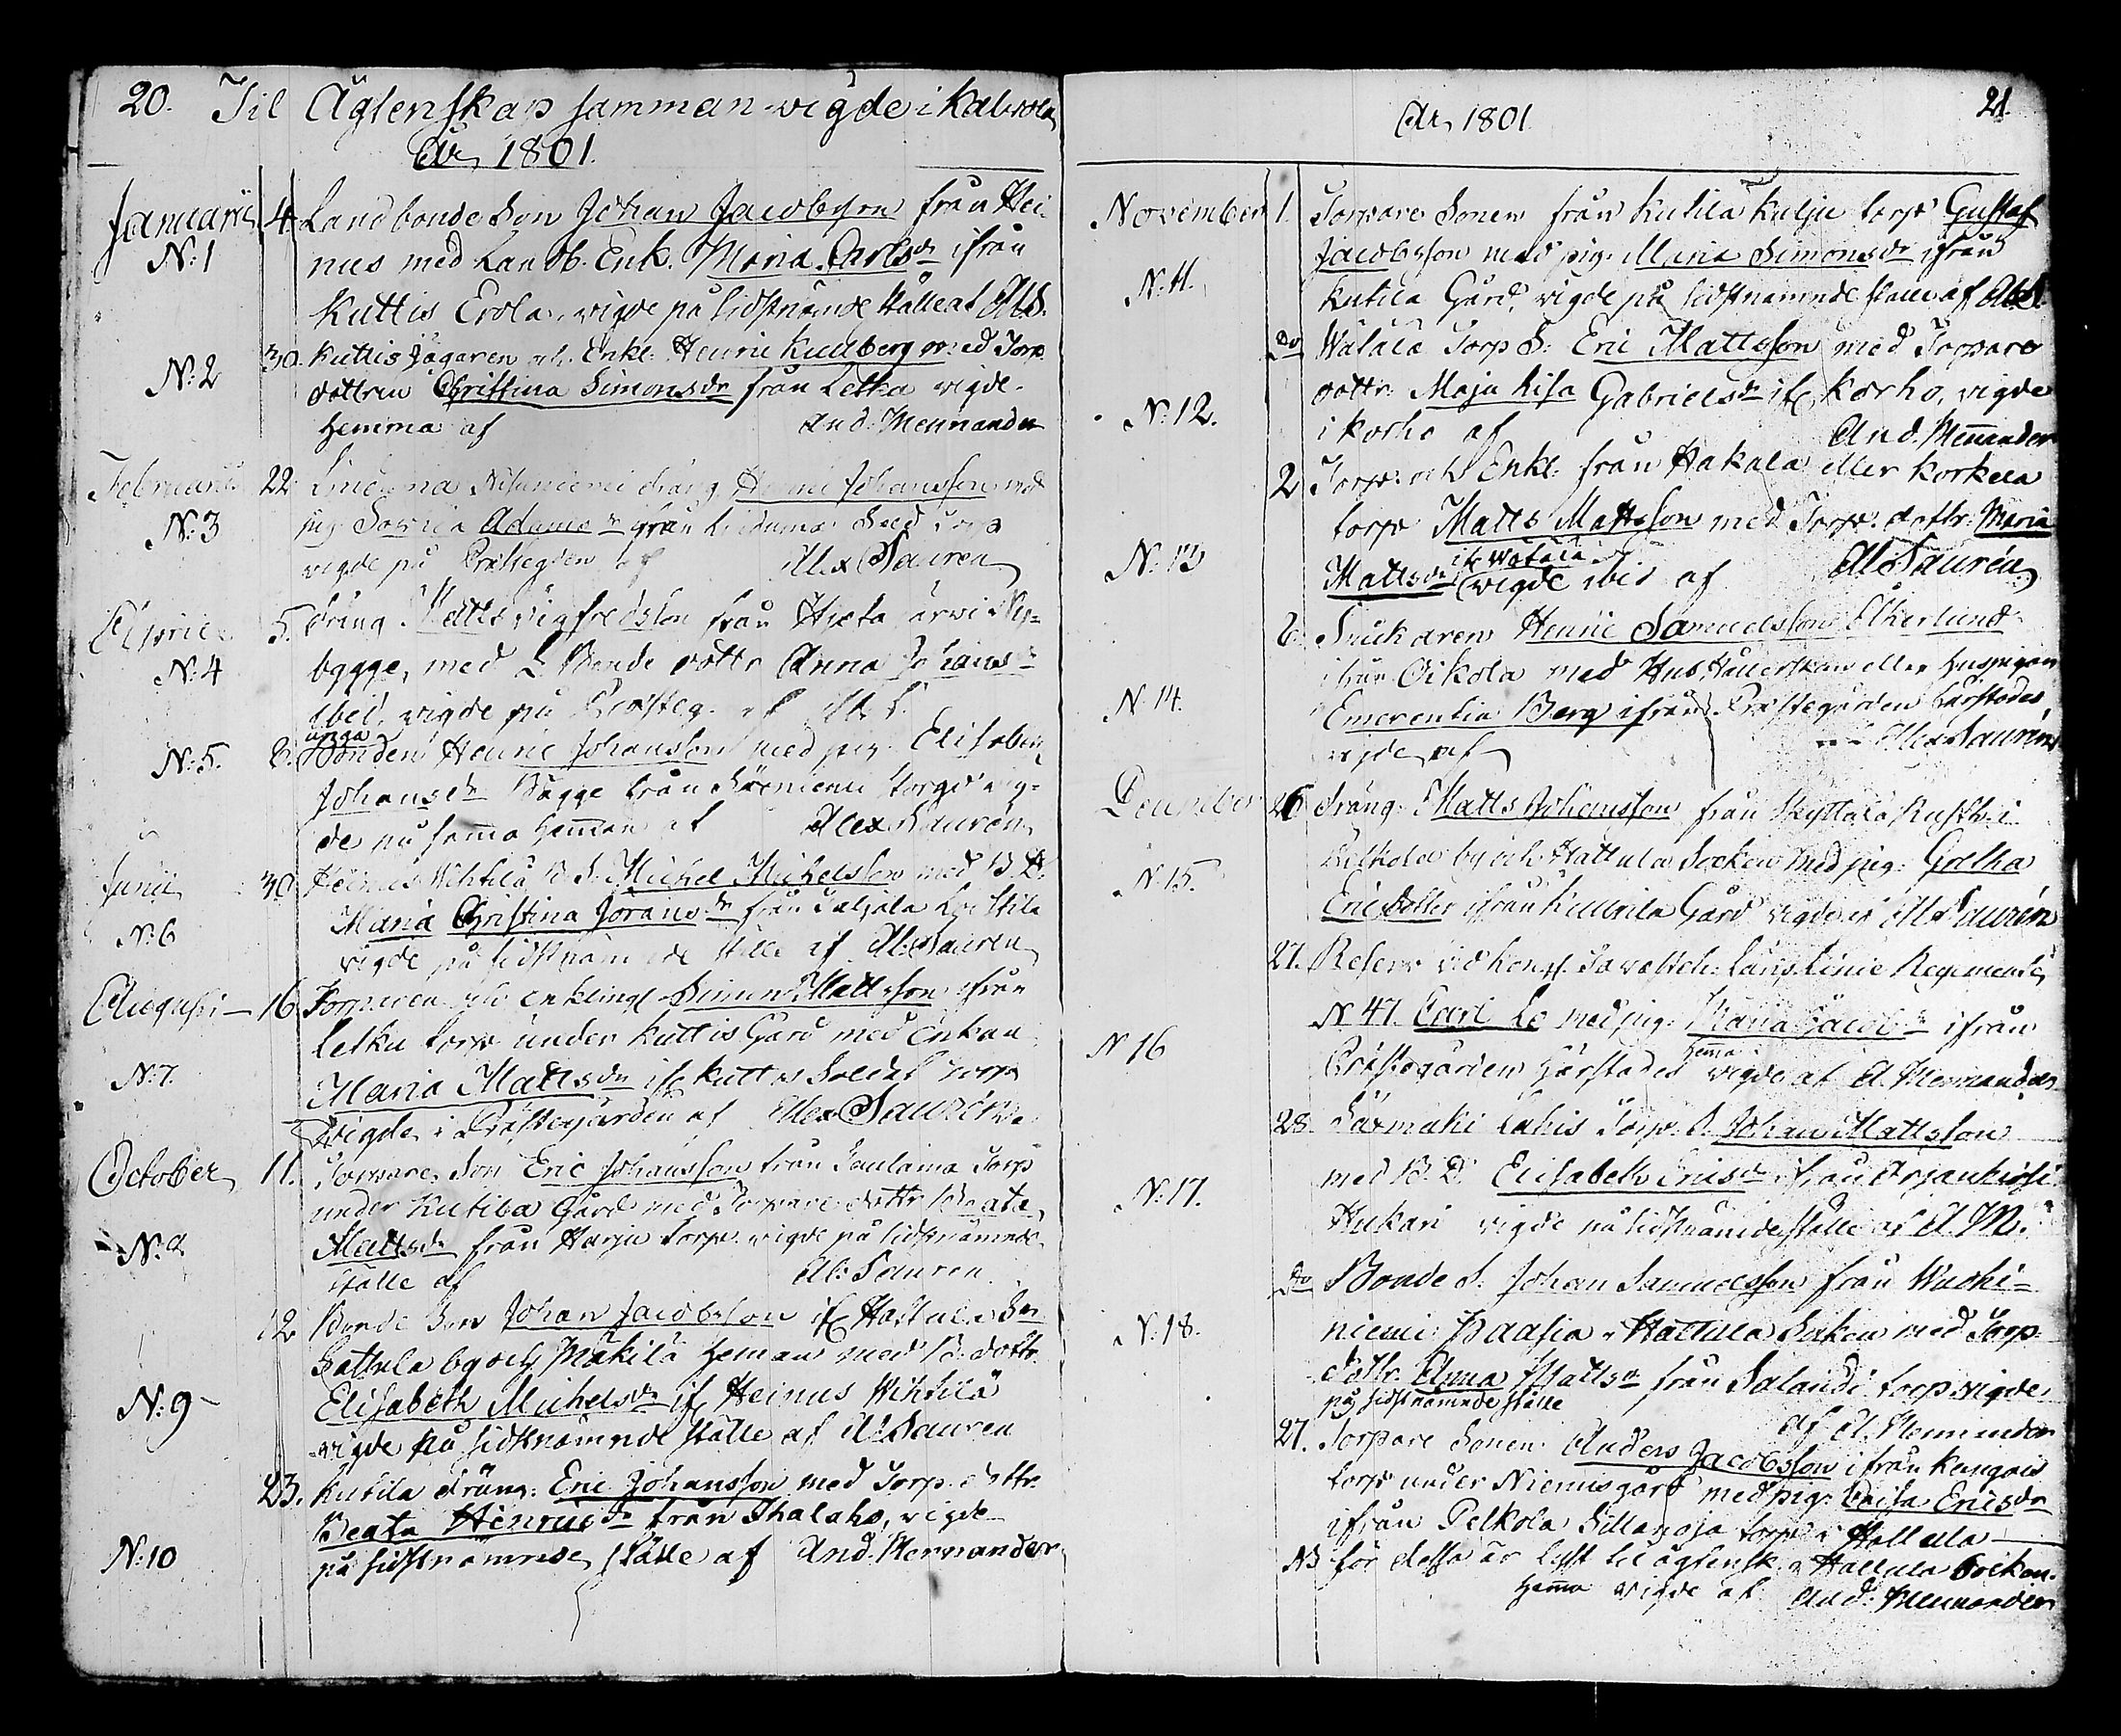 20. Til Ägtenskap samman-vigde i Kalvola
År 1801.
Januarii 4. Landbonde Son Johan Jacobsson från Hei-
N:1 nus med Landb. Enk. Maria Carlsdr ifrån
Kuttis Erola, vigde på sidstnämde ställe af Al S.
N:2 30. Kuttis Jägaren och Enkl: Henric Kullberg med Torp.
dottren Christina Simonsdr från Letka vigde
hemma af And: Mennander
Februarii 22. dräng Henric Johansson med
N:3 pig. Adamsdr från Torp
vigde på Prästegden af Alex Sauren
April 5. Dräng Matts Sigfredsson från Ny-
N:4 bygge, med L. Bonde dottr Anna Johansdr
ibid. vigde på Prästeg. af Al. S.
unga
N:5. 6. Bonden Henric Johansson med pig. Elisabeth
Johansdr Bagge från vig-
de på samma Hemman af Alex Saurén
Junii 30. Heinus Wihtilä B. S. Michel Michelsson med B. D.
N:6 Maria Christina Jöransdr från
vigde på sidstnämde ställe af Al: Sauren
Augusti 16. Torparen och enklingl Simon Mattsson ifrån
Letku torp under Kuttis Gård med Enkan
N:7. Maria Mattsdr ifr Kuttis Soldat torp
vigde i Prästegården af Alex Saurén
October 11. Torpare Son Eric Johansson från Torp
under Kutila Gård med Torpare dottr Beata
N:8 Mattsdr från Harju Torp. vigde på sidstnämnde
ställe af Al: Sauren
12 Bonde Son Johan Jacobsson ifr Hattula Sn
Sattula by och Mäkilä Heman med B: dottr.
N:9 Elisabeth Michelsdr ifr Heinus Wihtilä
vigde på sidstnämnde ställe af Al Sauren
23. Kutila dräng: Eric Johansson med Torp. dottr.
Beata Henricsdr från vigde
N:10 på sidstnämnde ställe af And. Mennander
År 1801. 21.
November 1. Torpare Sonen från Kutila Kulju torp Gustaf
Jacobsson med pig. Maria Simonsdr ifrån
N:11. Kutila Gård, vigde på sidstnämnde ställe af Al S.
Do Wätälä Torp S: Eric Mattsson med Torpare
dottr. Maja Lisa Gabrielsdr ifr Korho, vigde
N:12. i Korho af And. Mennander
2 Torp: och Enkl: från Hakala eller Korkela
torp Matts Mattsson med Torp. dottr: Maria
ifr Wätälä
N:13 Mattsdr vigde ibid af Al Saurén
6. Snickaren Henric Samuelsson Åkerlund
ifrån Oikola med Hus Hållerskan eller huspigan
N:14. Emerentia Berg ifrån Prästegården härstädes,
vigde af Alex Saurén
December 26 Dräng: Matts Johansson från Skyttälä Rusth. i
by och Hattula Socken med pig: Gretha
N:15. Ericsdotter ifrån Gård vigde af Al Saurén
27. Reserv vid Kongl. Tavasteh. Läns Linie Regemente,
N 47. Carl Lo med pig: Maria Jacobsdr ifrån
hemma
N 16 Prästegården härstädes vigde af A. Mennander
28. Lahis Torp. S. Johan Mattsson
med B. D. Elisabeth Ericsdr ifrån
N:17. Hukari vigde på sidstnämde ställe af A. M.
Do Bonde S. Johan Samuelsson från Wuohi-
N:18. niemi Paasia i Hattula Soken med Torp.
dottr. Anna Mattsdr från Salandi torp vigde
på sidstnämnde ställe af A. Mennander
27. Torpare Sonen Anders Jacobsson ifrån
torp under Niemis gård med pig: Caisa Ericsdr
ifrån Pelkola Sillanoja torp i Hattula
NB för dessa är lyst til ägtensk. i Hattula Socken.
hemma vigde af And: Mennander